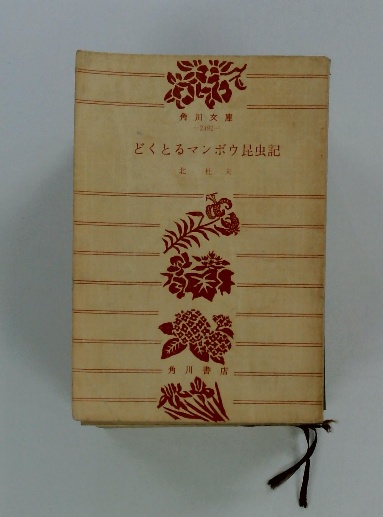 角川文庫
どくとるマンボウ昆虫記
北杜夫
角川書店